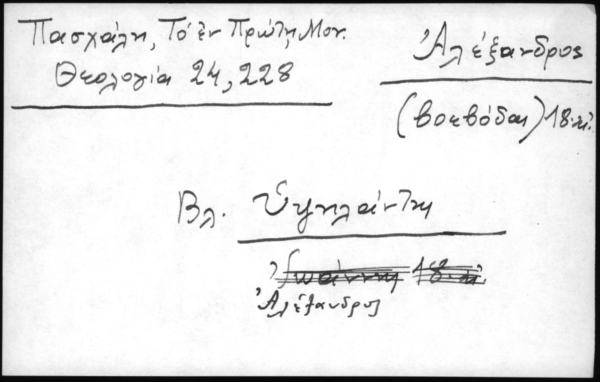 Πασχάλη, Τό ἐν Πρώτῃ Μον.
Θεολογία 24, 228
Ἀλέξανδρος
(βοεβόδας) 18 αἰ.
Βλ. Ὑψηλάντη
Ἰωάννην 18 αἰ.
Ἀλέξανδρος